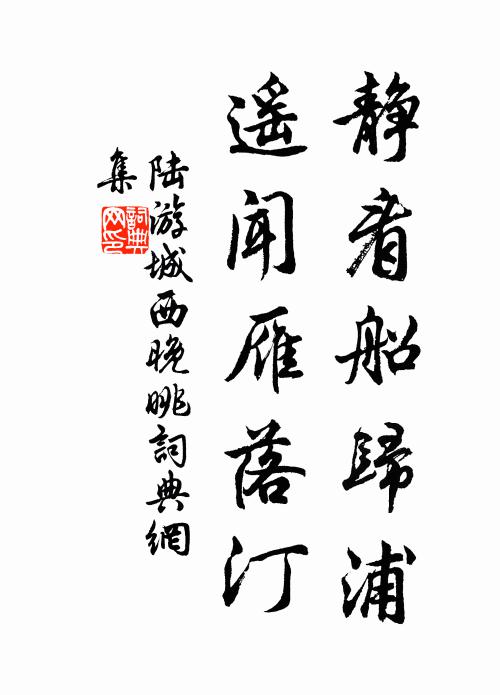 静看船歸浦
遥聞雁落汀
陆游城西晚眺詞典網
集
詞典
网印